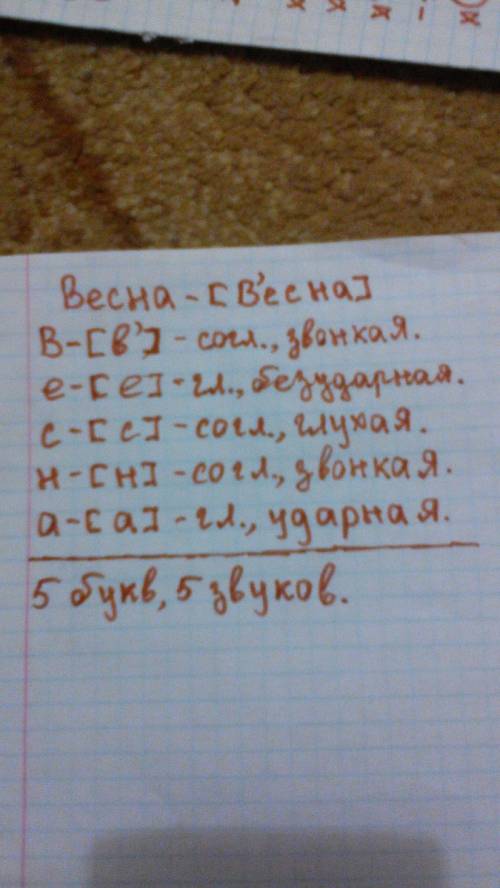 Весна - [В'есна]
В - [в'] - согл., звонкая.
е - [е] - гл., безударная.
с - [с] - согл., глухая.
н - [н] - согл., звонкая.
а - [а] - гл., ударная.
5 букв, 5 звуков.